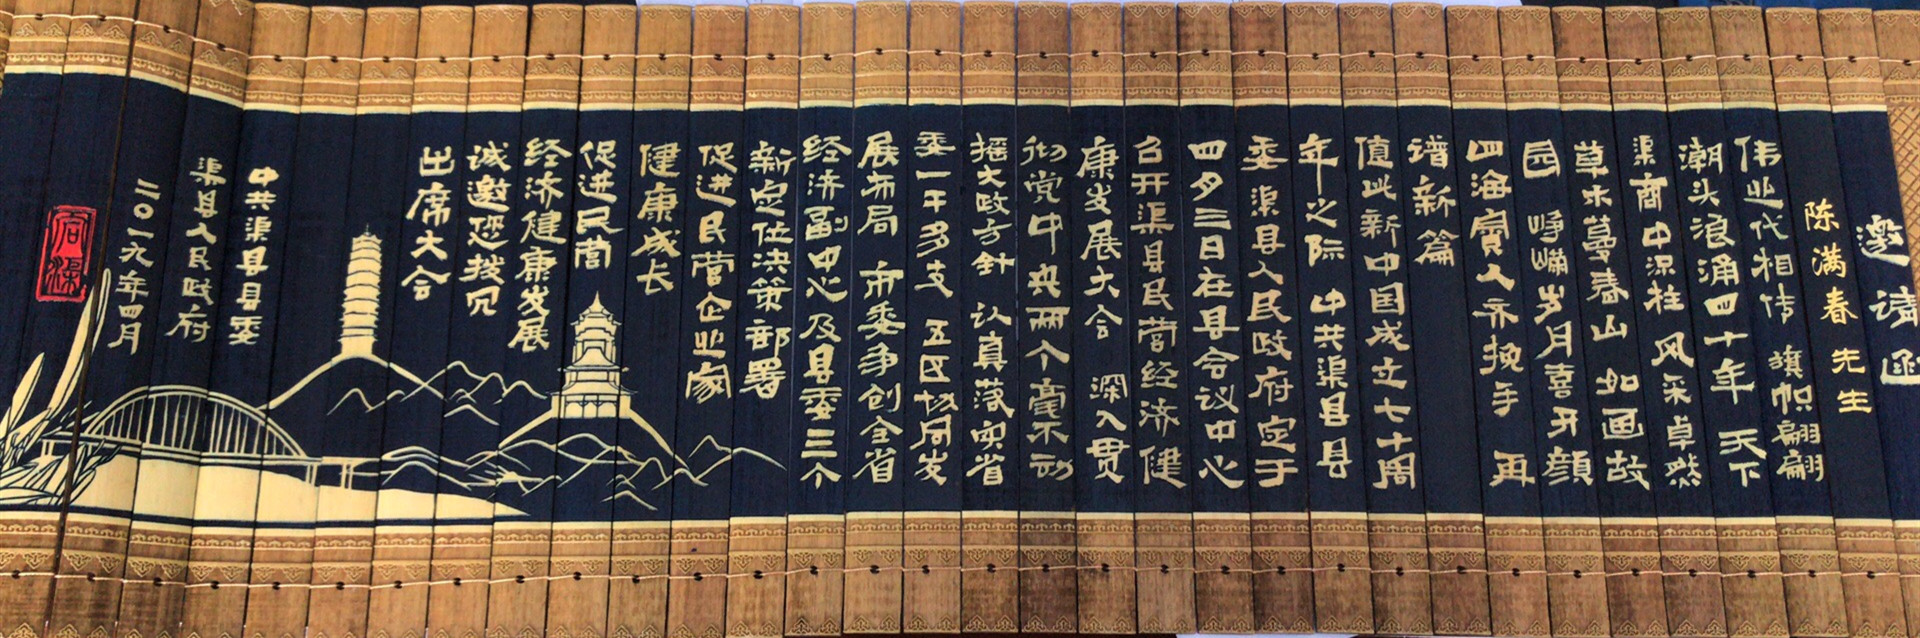 邀请函
陈满春先生
伟业代相传 旗帜翩翩
潮头浪涌四十年 天下
渠商中流柱 风采卓然
草木蔓春山 如画故
园 峥嵘岁月喜开颜
四海宾人齐挽手 再
谱新篇
值此新中国成立七十周
年之际 中共渠县县
委渠县人民政府定于
四月三日在县会议中心
召开渠县民营经济健
康发展大会 深入贯
彻党中央两个毫不动
摇大政方针 认真落实省
委一干多支 五区协同发
展布局 市委争创全省
经济副中心及县委三个
新定位决策部署
促进民营企业家
健康成长
促进民营
经济健康发展
诚邀您拨冗
出席大会
中共渠县县委
渠县人民政府
二〇一九年四月